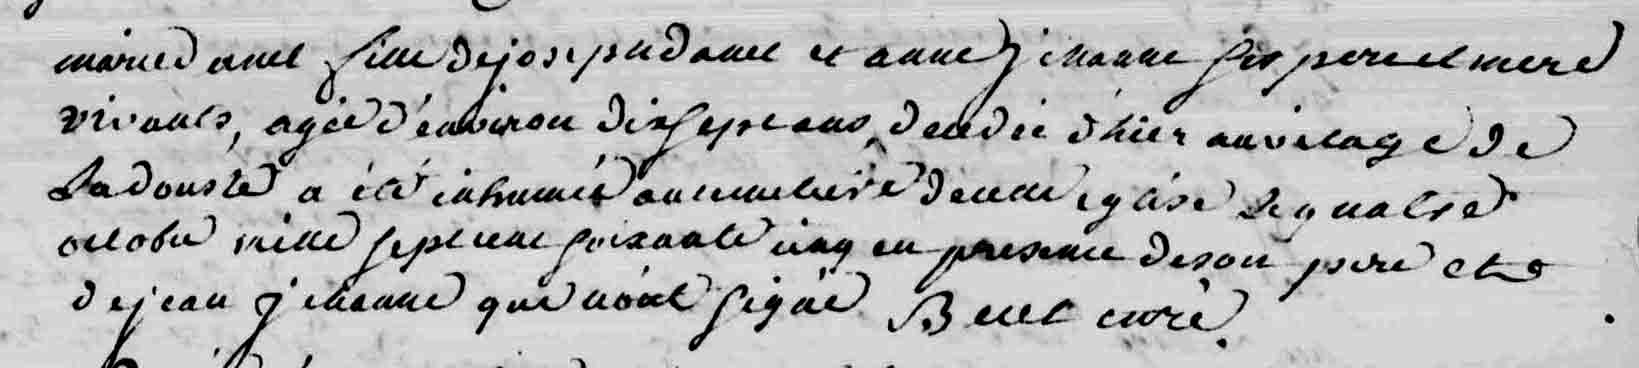 marie danel fille de joseph danel et anne jehanne ses pere et mere
vivants, agée d'environ dix sept ans, decedée d'hier au vilage de
Ladousle a été inhumée au cimetiere de cette eglise le quatre
octobre mille sept cent soixante cinq en presence de son pere et
de jean jehanne qui n'ont signé. curé.